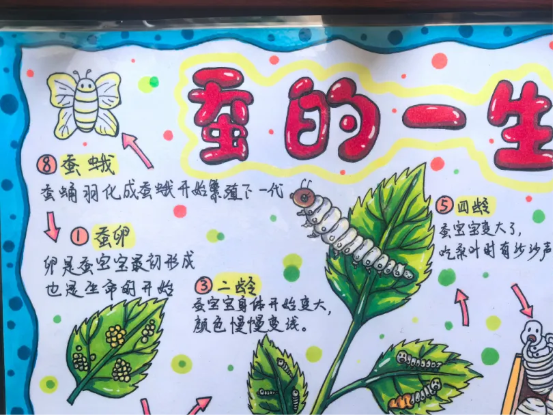 蚕的一生
⑧ 蚕蛾
蚕蛹羽化成蚕蛾开始繁殖下一代
① 蚕卵
卵是蚕宝宝最初形成
也是生命的开始
③ 二龄
蚕宝宝身体开始变大,
颜色慢慢变浅。
⑤ 四龄
蚕宝宝变大了,
吃桑叶时有沙沙声